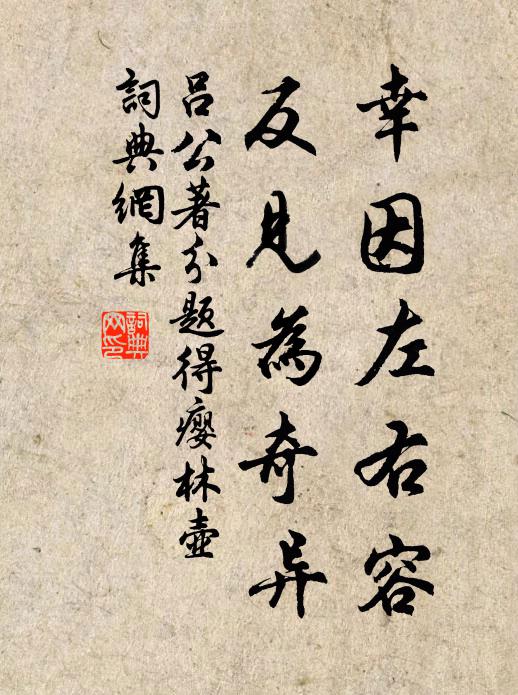 幸因左右容
反見為奇异
呂公著分題得癭林壺
詞典網集
詞典
网印